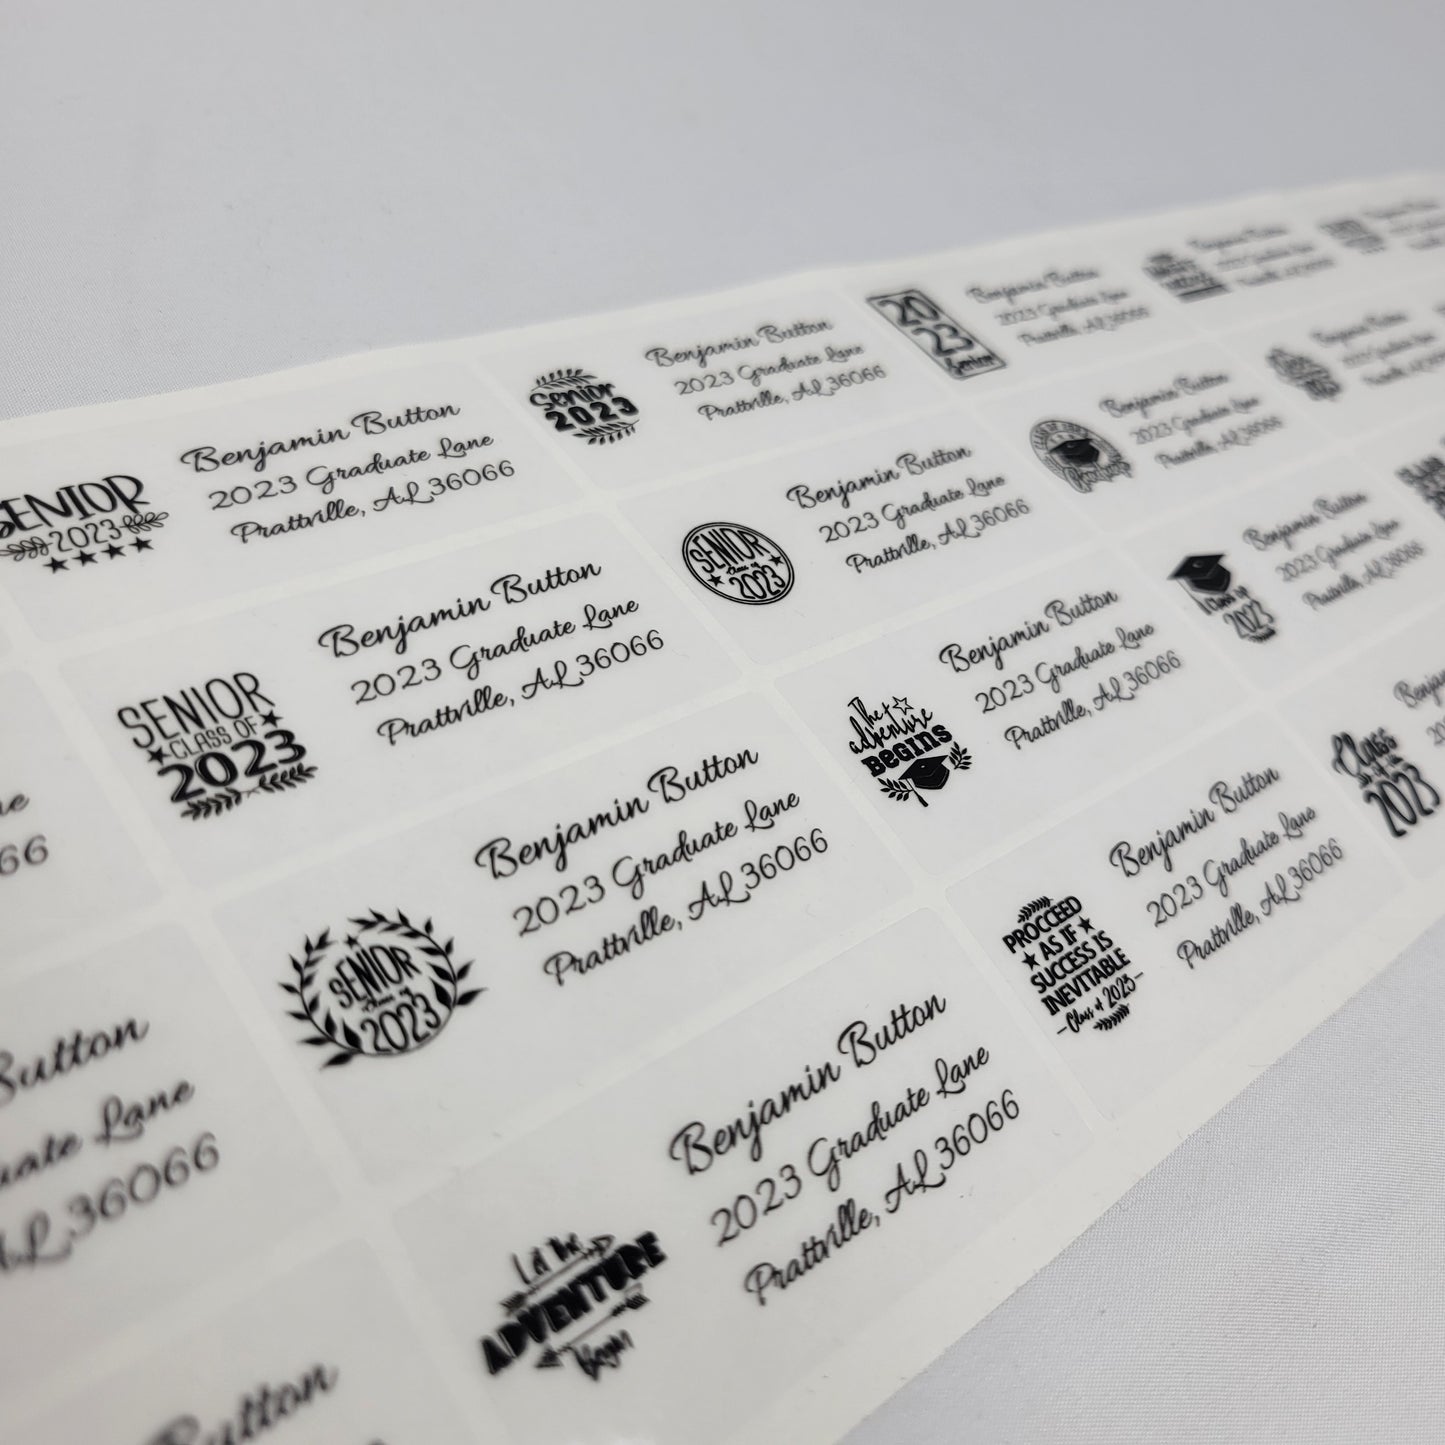 SENIOR
2023
Benjamin Button
2023 Graduate Lane
Prattville, AL 36066
Senior
2023
Benjamin Button
2023 Graduate Lane
Prattville, AL 36066
20
23
Senior
Benjamin Button
2023 Graduate Lane
Prattville, AL 36066
Benjamin Button
SENIOR
CLASS OF
2023
Benjamin Button
2023 Graduate Lane
Prattville, AL 36066
SENIOR
Class of
2023
Benjamin Button
2023 Graduate Lane
Prattville, AL 36066
Benjamin Button
2023 Graduate Lane
Prattville, AL 36066
SENIOR
Class of
2023
Benjamin Button
2023 Graduate Lane
Prattville, AL 36066
The
adventure
BEGINS
Benjamin Button
2023 Graduate Lane
Prattville, AL 36066
Class of
2023
Benjamin Button
2023 Graduate Lane
Prattville, AL 36066
Let the
ADVENTURE
Begin
Benjamin Button
2023 Graduate Lane
Prattville, AL 36066
PROCCEED
AS IF
SUCCESS IS
INEVITABLE
Class of 2023
Benjamin Button
2023 Graduate Lane
Prattville, AL 36066
CLASS
of the
2023
66
Button
Lane
AL 36066
Button